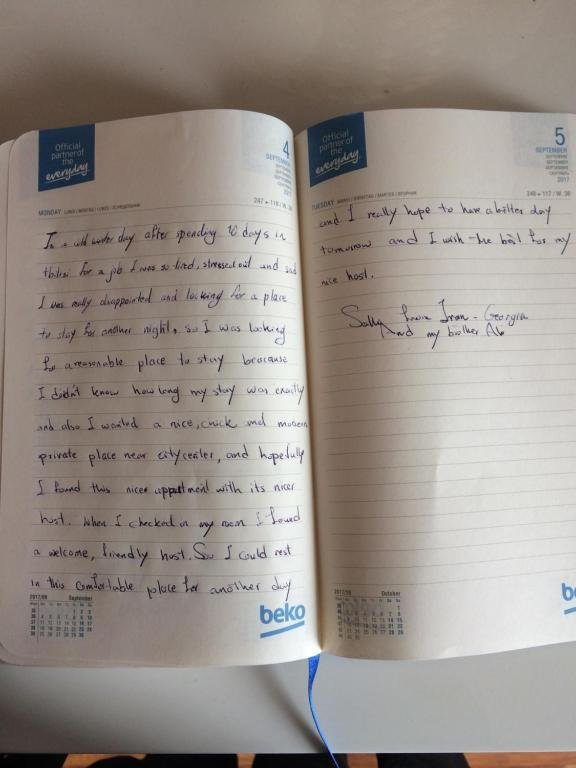 Official
partner of
the
everyday
4
SEPTEMBER
2017
MONDAY
247 • 118 / W. 36
In a cold winter day after spending 16 days in
tbilisi for a job I was so tired, stressed out and sad
I was really disappointed and looking for a place
to stay for another night, so I was looking
for a reasonable place to stay beracause
I didn't know how long my stay was exactly
and also I wanted a nice, chick and modern
private place near city center, and hopefully
I found this nicer appartment with its nicer
host. When I checked in my room I found
a welcome, friendly host. So I could rest
in this comfortable place for another day
2017/09 September
beko
Official
partner of
the
everyday
5
SEPTEMBER
2017
TUESDAY
248 • 117 / W. 36
and I really hope to have a better day
tomorrow and I wish the best for my
nice host.
Sally from Iran - Georgia
And my brother
October
be